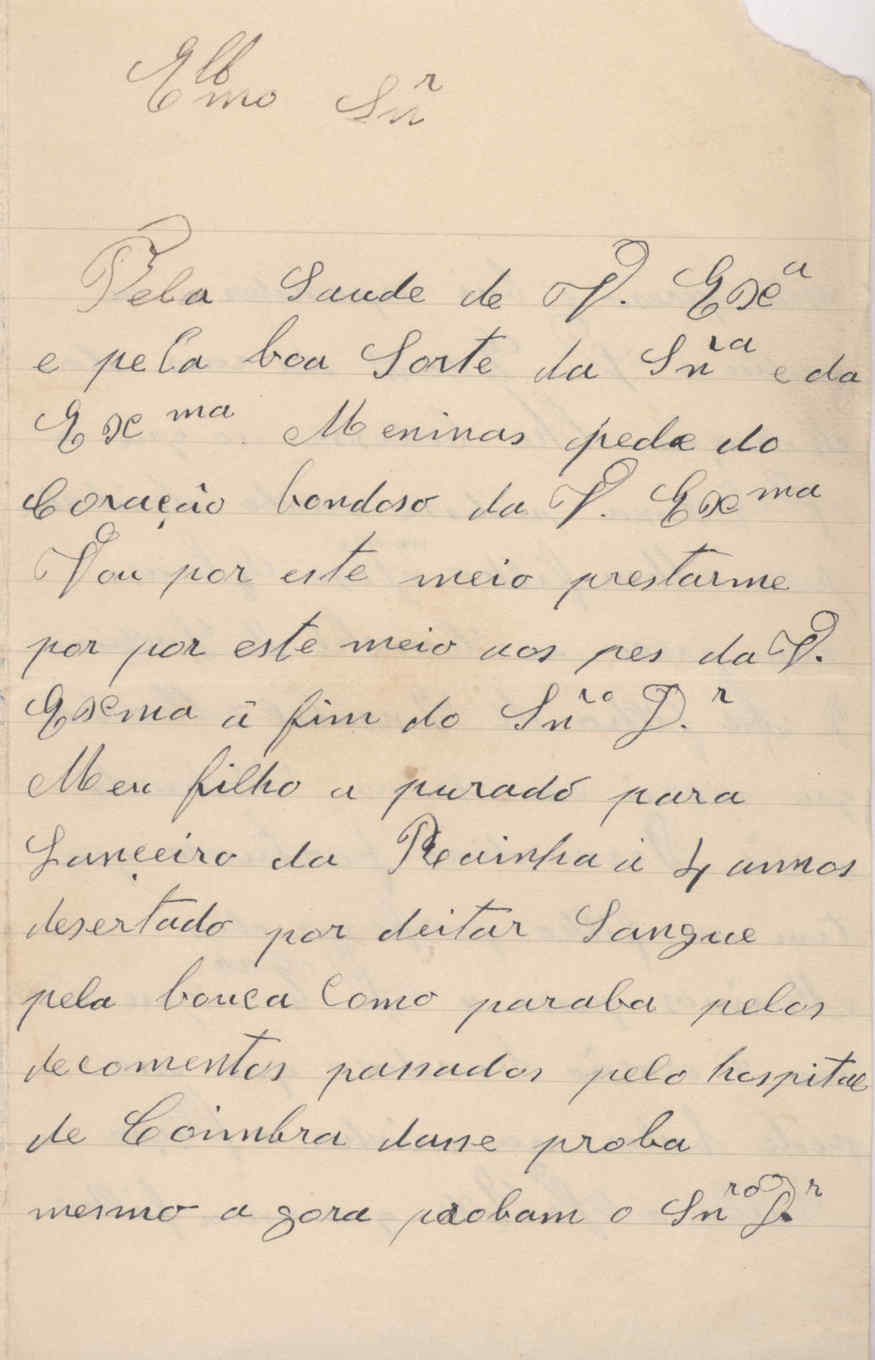 Ellmo Snr
Pela Saude de V. Exca
e pela boa Sorte da Snra e da
Exma Meninas pede do
Coração bondoso da V. Exma
Vou por este meio prestarme
por por este meio aos pes da V.
Exema â fim do Snro D.r
Meu filho a purado para
Lançeiro da Rainha á 4 annos
desertado por deitar Sangue
pela bouca Como paraba pelos
decomentos passados pelo hospital
de Coimbra dasse proba
mesmo a gora probam o Snro D.r